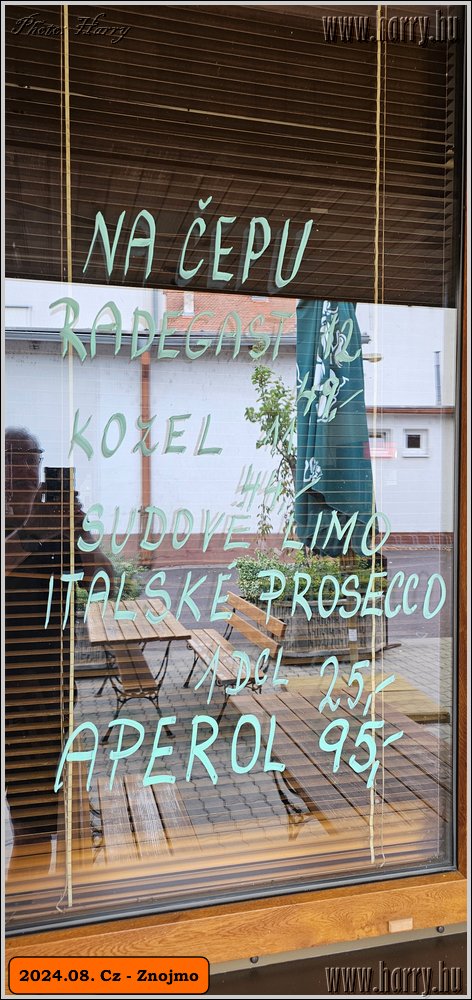 Photo: Harry
www.horry.hu
NA ČEPU
RADEGAST 12
48,-
KOZEL 11
44,-
SUDOVÉ LIMO
ITALSKÉ PROSECCO
1DCL 25,-
APEROL 95,-
2024.08. Cz - Znojmo
www.horry.hu